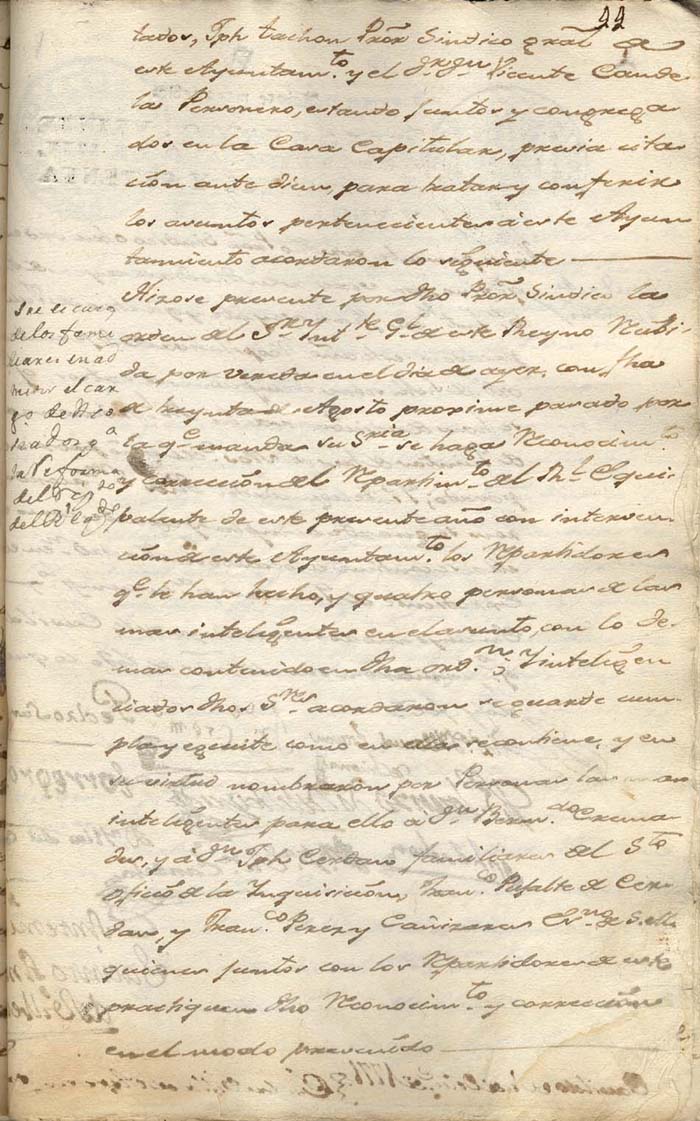 44
tados, Jph tachon Prõr Sindico gral de
este Ayuntam.to y el Dr. Dn Vicente Cande-
la Personero, estando juntos y congrega
dos en la Casa Capitular, previa cita
ción ante diem, para tratar y conferir
los asuntos pertenecientes à este Ayun
tamiento acordaron lo siguiente
Hizose presente por dho Prõr Sindico la
orden del Sr. Int.te Gl. de este Reyno Recibi
da por vereda en el dia de ayer, con fha
de treynta de Agosto proximo pasado por
la q.e manda su Sria se haga Reconocim.to
y corrección del Repartim.to del Rl. Equi
valente de este presente año con interven
ción de este Ayuntam.to los Repartidores
q.e le han hecho, y quatro personas de las
mas inteligentes en el asunto, con lo de
mas contenido en dha ord.n Y inteligen
ciados dhos Sres acordaron se guarde cum
pla y egecute como en ella se contiene, y en
su virtud nombraron por Personas las mas
inteligentes para ello a Dn Bern.do Crema
des, y à Dn Jph Cerdan familiares del Sto
oficio de la Inquisición, Fran.co Pujalte de Cer
dan, y Fran.co Perez y Cañizares Esno de S.
quienes juntos con los Repartidores de este
practiquen dho Reconocim.to y corrección
en el modo prevenido
Sre el cargo
de los fami
liares en ad
mitir el car
go de
la Reforma
del
del